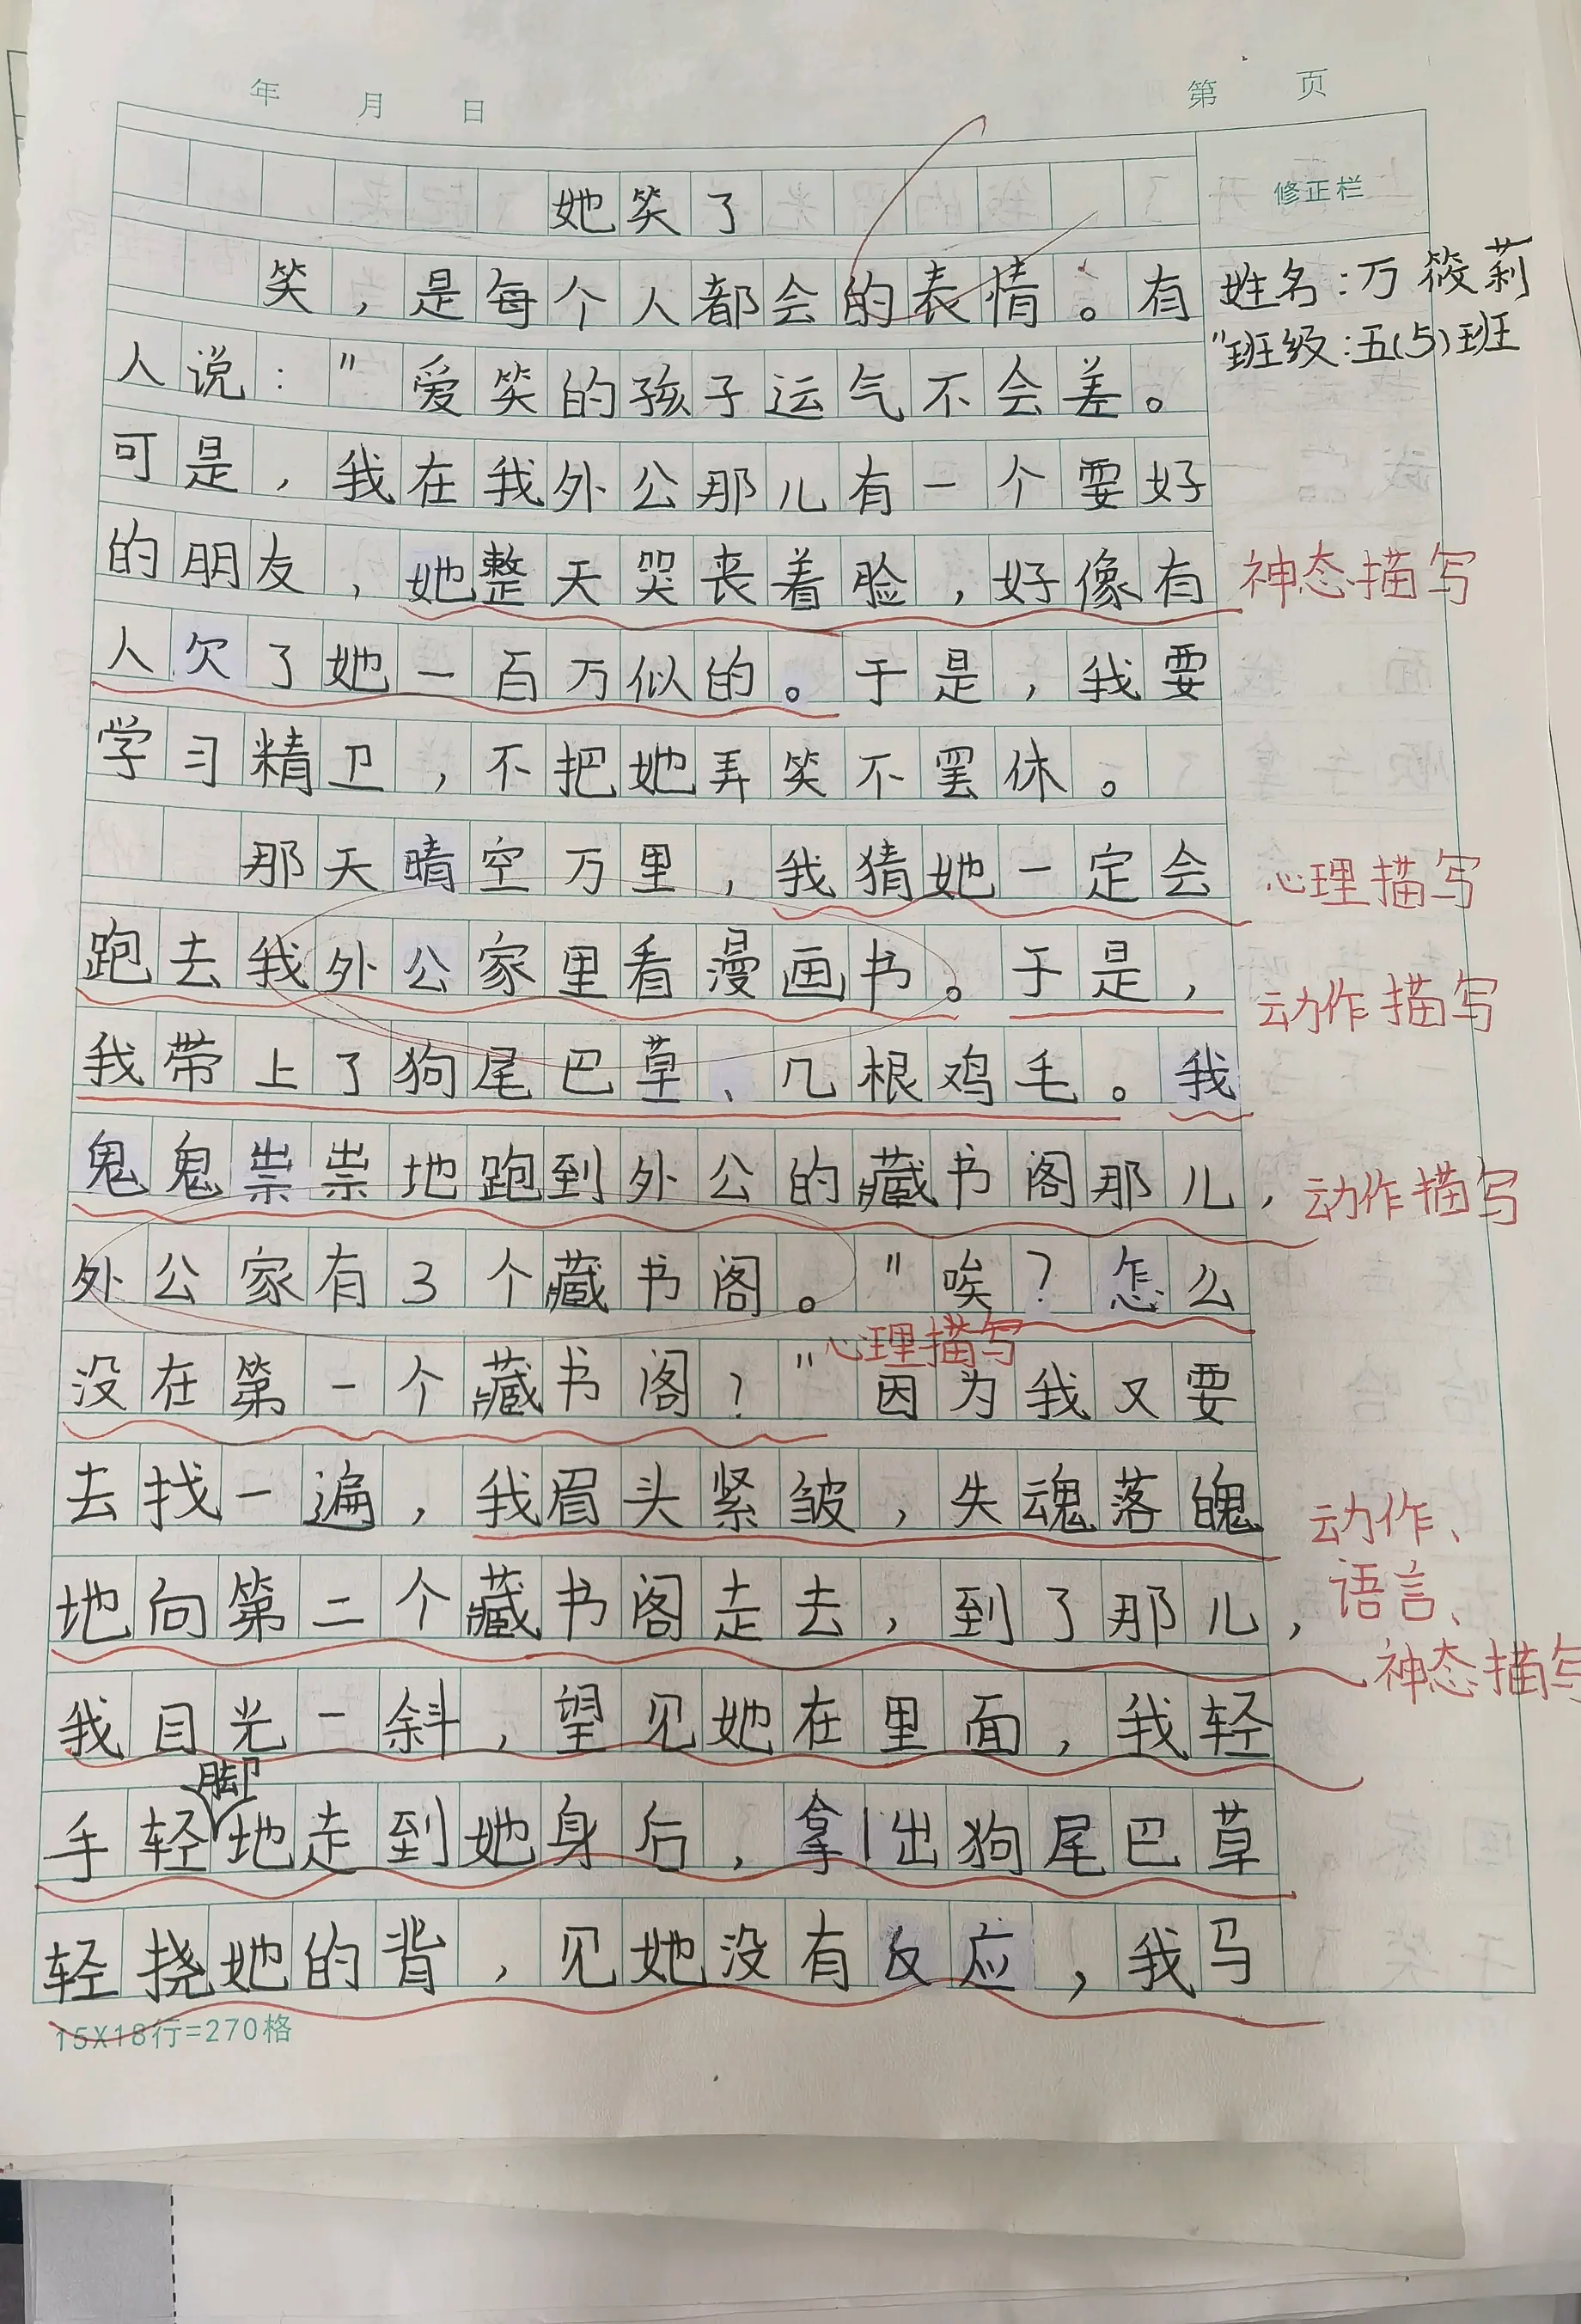 年 月 日 第 页
她笑了
修正栏
笑，是每个人都会的表情。有
姓名：万筱莉
人说："爱笑的孩子运气不会差。"
班级：五(5)班
可是，我在我外公那儿有一个要好
的朋友，她整天哭丧着脸，好像有
神态描写
人欠了她一百万似的。于是，我要
学习精卫，不把她弄笑不罢休。
那天晴空万里，我猜她一定会
心理描写
跑去我外公家里看漫画书。于是，
动作描写
我带上了狗尾巴草、几根鸡毛。我
鬼鬼祟祟地跑到外公的藏书阁那儿，
动作描写
外公家有3个藏书阁。"唉？怎么
心理描写
没在第一个藏书阁？"因为我又要
去找一遍，我眉头紧皱，失魂落魄
动作、
语言、
神态描写
地向第二个藏书阁走去，到了那儿，
我目光一斜，望见她在里面，我轻
手轻脚地走到她身后，拿出狗尾巴草
轻挠她的背，见她没有反应，我马
15X18行=270格